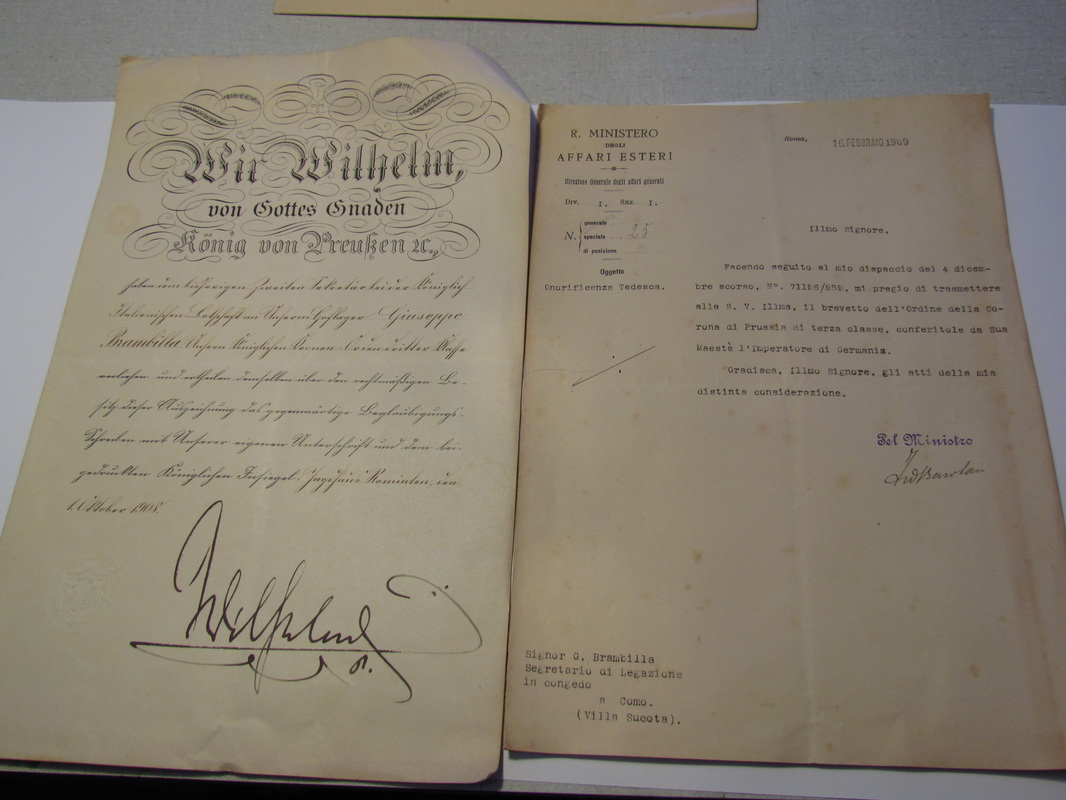 Wir Wilhelm,
von Gottes Gnaden
König von Preußen ꝛc.,
haben dem bisherigen zweiten Sekretär bei der Königlich
Italienischen Botschaft an Unserem Hoflager Giuseppe
Brambilla Unsern Königlichen Kronen-Orden dritter Klasse
verliehen und ertheilen demselben über den rechtmäßigen Be-
sitz dieser Auszeichnung das gegenwärtige Beglaubigungs-
Schreiben mit Unserer eigenen Unterschrift und dem bei-
gedruckten Königlichen Insiegel. Jagdhaus Rominten, den
1. Oktober 1908.
Wilhelm
R. MINISTERO
DEGLI
AFFARI ESTERI
Direzione Generale degli affari generali
Div. I. Sez. I.
N. generale
speciale 25
di posizione
Oggetto
Onorificenza Tedesca.
Roma, 16.FEBBRAIO 1909
Illmo Signore.
Facendo seguito al mio dispaccio del 4 dicem-
bre scorso, N°. mi pregio di trasmettere
alla S. V. Illma, il brevetto dell'Ordine della Co-
rona di Prussia di terza classe, conferitole da Sua
Maestà l'Imperatore di Germania.
Gradisca, Illmo Signore, gli atti della mia
distinta considerazione.
Pel Ministro
Signor G. Brambilla
Segretario di Legazione
in congedo
a Como.
(Villa Sucota).